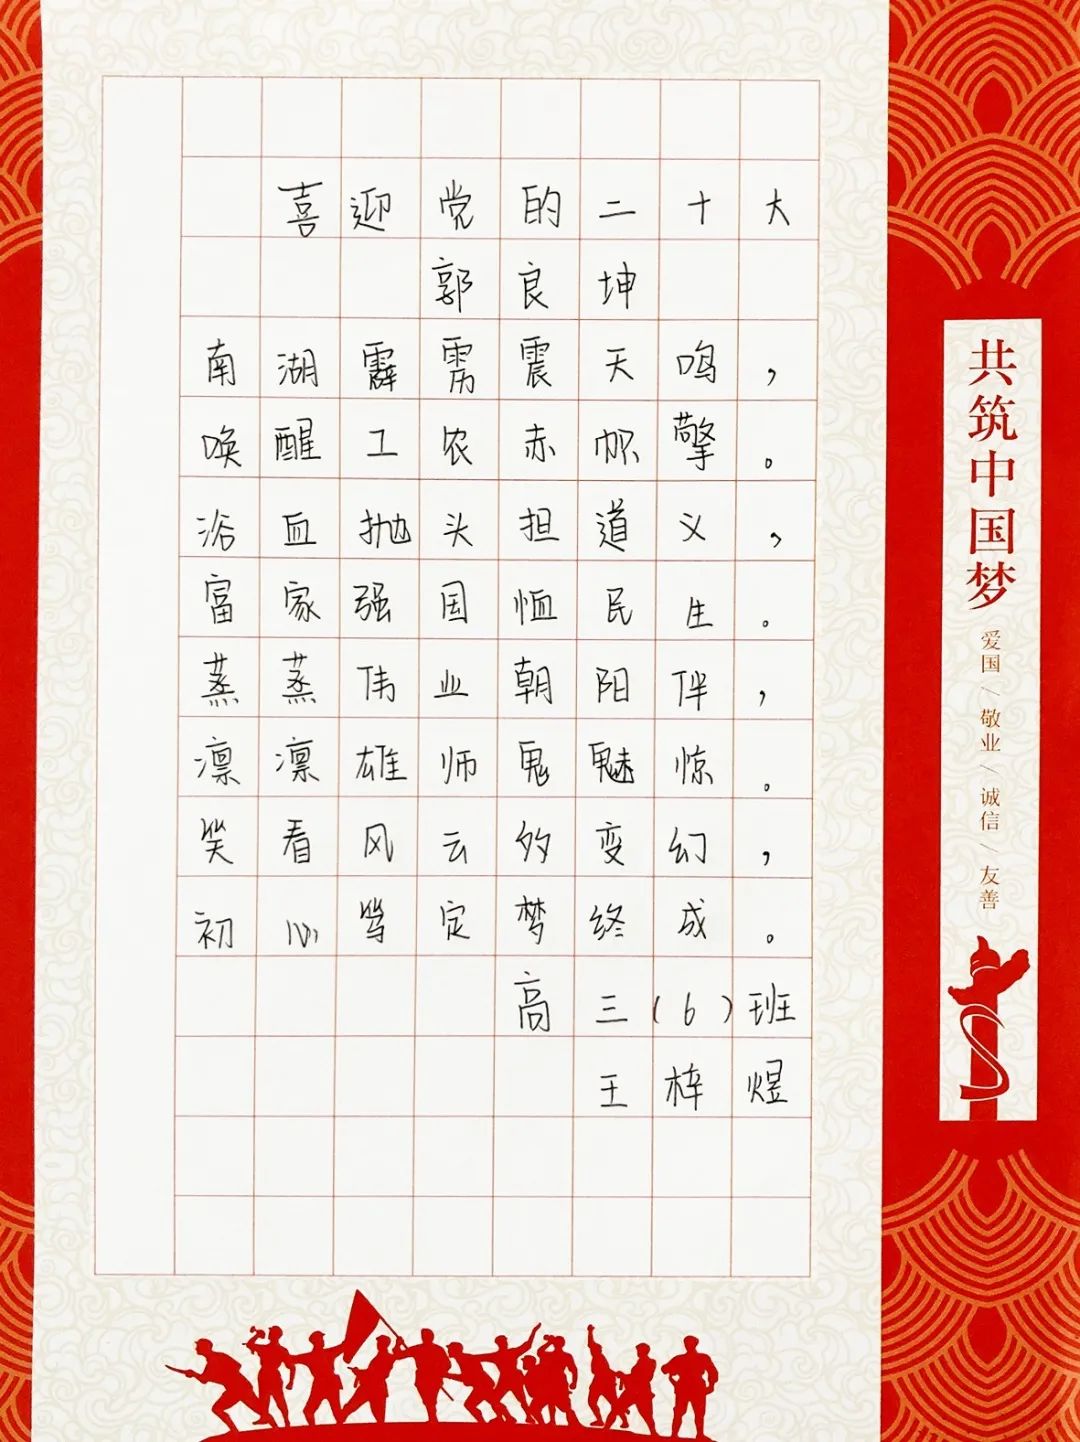 喜迎党的二十大
郭良坤
南湖霹雳震天鸣，
唤醒工农赤帜擎。
浴血抛头担道义，
富家强国恤民生。
蒸蒸伟业朝阳伴，
凛凛雄师鬼魅惊。
笑看风云的变幻，
初心笃定梦终成。
高三(6)班
王梓煜
共筑中国梦
爱国/敬业/诚信/友善